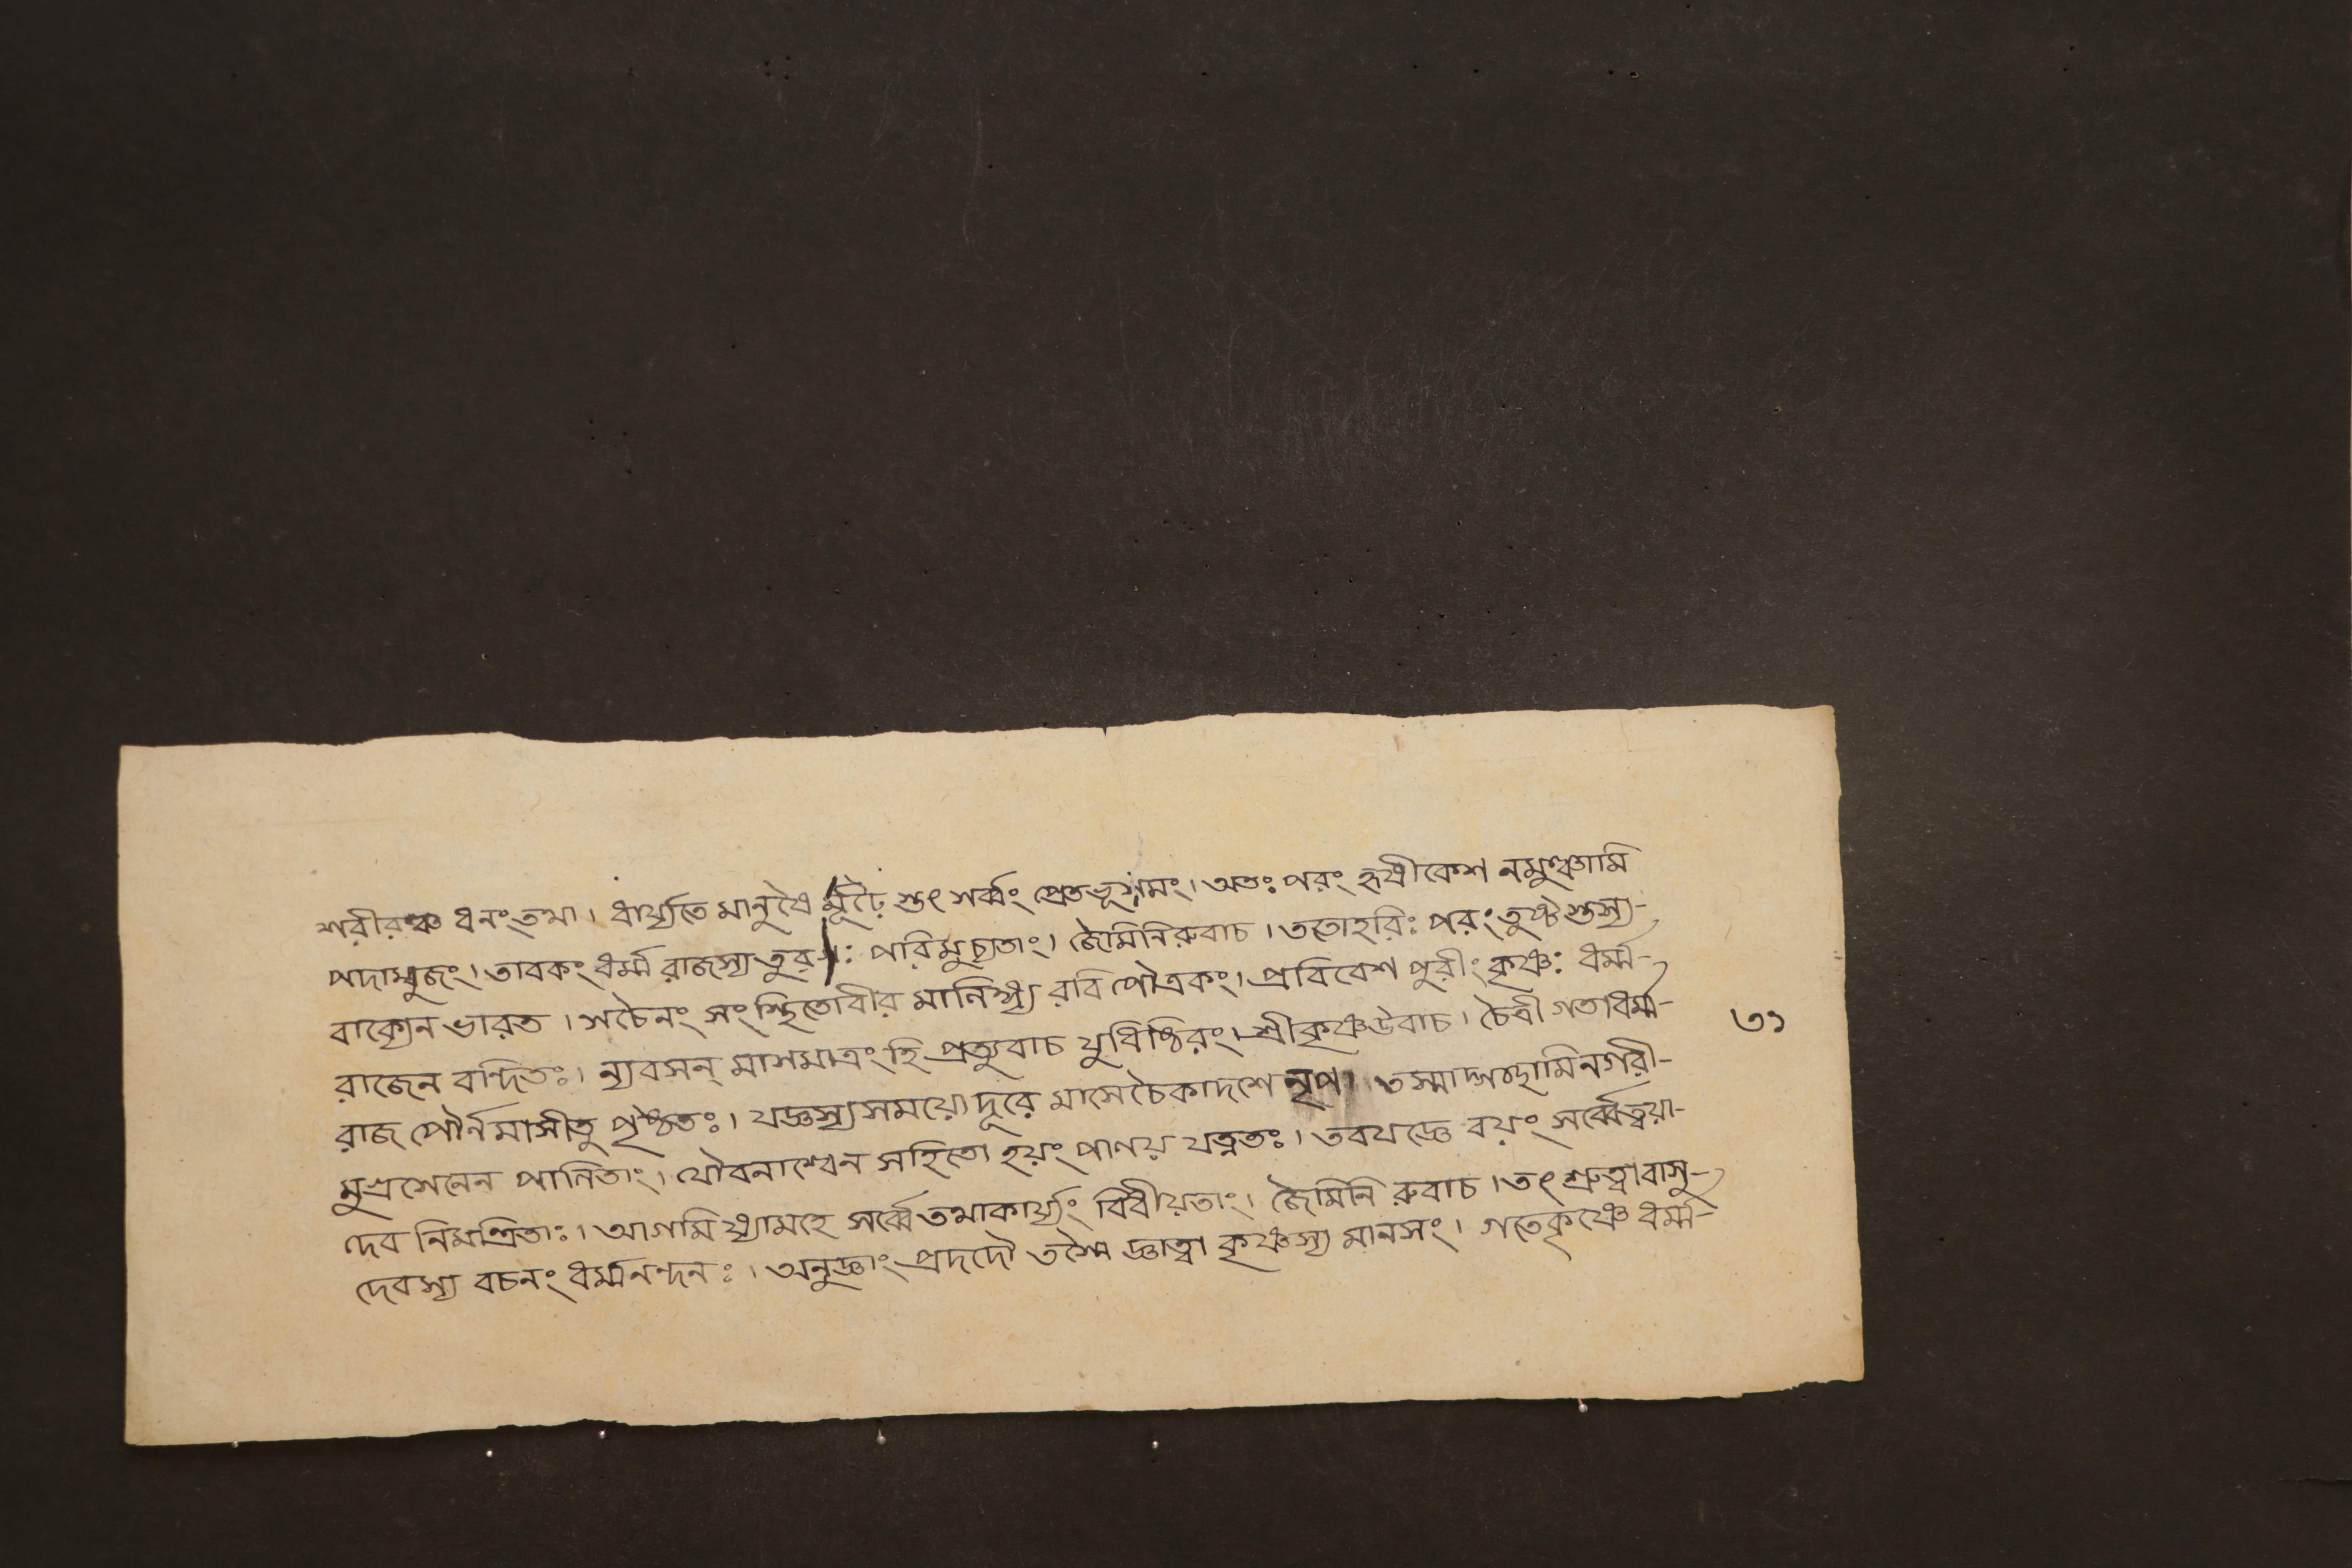 শরীরঞ্চ ধনং তথা । ধার্য্যতে মানুষৈ র্মূঢ়ৈ স্তৎ সর্ব্বং প্রেতভূসমং । অতঃ পরং হৃষীকেশ নমুঞ্চামি
পদাম্বুজং । তাবকং ধর্ম্ম রাজস্য তুরগঃ পরিমুচ্যতাং । জৈমিনিরুবাচ । ততোহরিঃ পরং তুষ্ট স্তস্য-
বাক্যেন ভারত । সচৈনং সংস্থিতোবীর মানিষ্প্য রবি পৌত্রকং । প্রবিবেশ পুরীং কৃষ্ণঃ ধর্ম্ম-
রাজেন বন্দিতঃ । ন্যবসন্ মাসমাত্রং হি প্রত্যুবাচ যুধিষ্ঠিরং । শ্রীকৃষ্ণউবাচ । চৈত্রী গতাধর্ম্ম-
রাজ পৌর্নমাসীতু পৃষ্ঠতঃ । যজ্ঞস্যসময়ো দূরে মাসে চৈকাদশে নৃপ । তস্মাদ্গচ্ছামিনগরী-
মুগ্রসেনেন পালিতাং । যৌবনাশ্বেন সহিতো হয়ং পালয় যত্নতঃ । তবযজ্ঞে বয়ং সর্ব্বেত্বয়া-
দেব নিমন্ত্রিতাঃ । আগমিষ্যামহে সর্ব্বে তথাকার্য্যং বিধীয়তাং । জৈমিনি রুবাচ । তৎ শ্রুত্বাবাসু-
দেবস্য বচনং ধর্ম্মনন্দনঃ । অনুজ্ঞাং প্রদদৌ তস্মৈ জ্ঞাত্বা কৃষ্ণস্য মানসং । গতেকৃষ্ণে ধর্ম্ম-
৩১